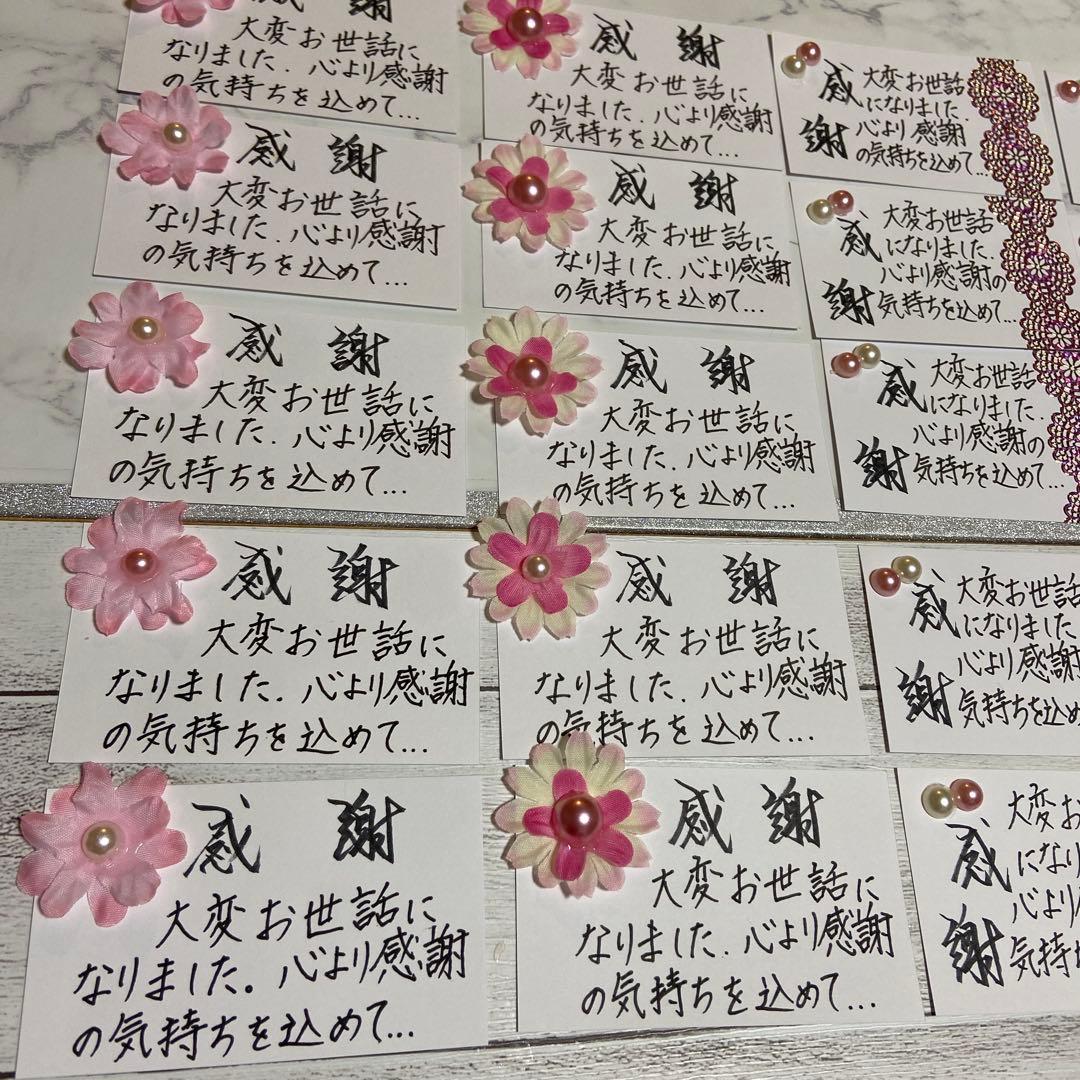 感 謝
大変お世話に
なりました. 心より感謝
の気持ちを込めて...
感 謝
大変お世話に
なりました. 心より感謝
の気持ちを込めて...
感 謝
大変お世話に
なりました. 心より感謝
の気持ちを込めて...
感 謝
大変お世話に
なりました. 心より感謝
の気持ちを込めて...
感 謝
大変お世話に
なりました。心より感謝
の気持ちを込めて...
感 謝
大変お世話に
なりました. 心より感謝
の気持ちを込めて...
感 謝
大変お世話に
なりました. 心より感謝
の気持ちを込めて...
感 謝
大変お世話に
なりました. 心より感謝
の気持ちを込めて...
感 謝
大変お世話に
なりました. 心より感謝
の気持ちを込めて...
感 謝
大変お世話に
なりました. 心より感謝
の気持ちを込めて...
感謝
大変お世話
になりました
心より感謝
の気持ちを込めて...
感謝
大変お世話
になりました
心より感謝の
気持ちを込めて...
感謝
大変お世話
になりました.
心より感謝の
気持ちを込めて...
感謝
大変お世話
になりました
心より感謝
気持ちを込め
感謝
大変お
になり
心より
気持